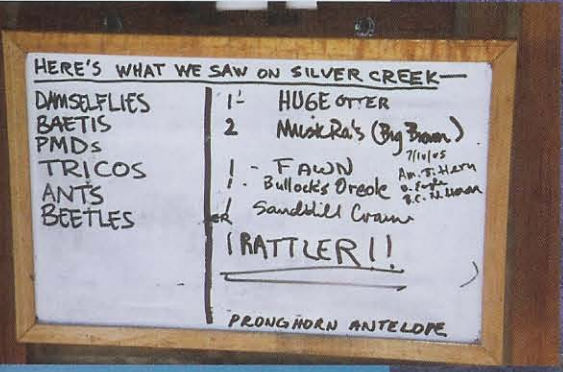 HERE'S WHAT WE SAW ON SILVER CREEK—
DAMSELFLIES
BAETIS
PMDs
TRICOS
ANTS
BEETLES
1- HUGE OTTER
2 MuskRa's (Big Brown)
7/10/05
1 - FAWN
1. Bullock's Oreole
Am.
B.C. N. Heron
1 Sandhill Crane
1 RATTLER!!
PRONGHORN ANTELOPE